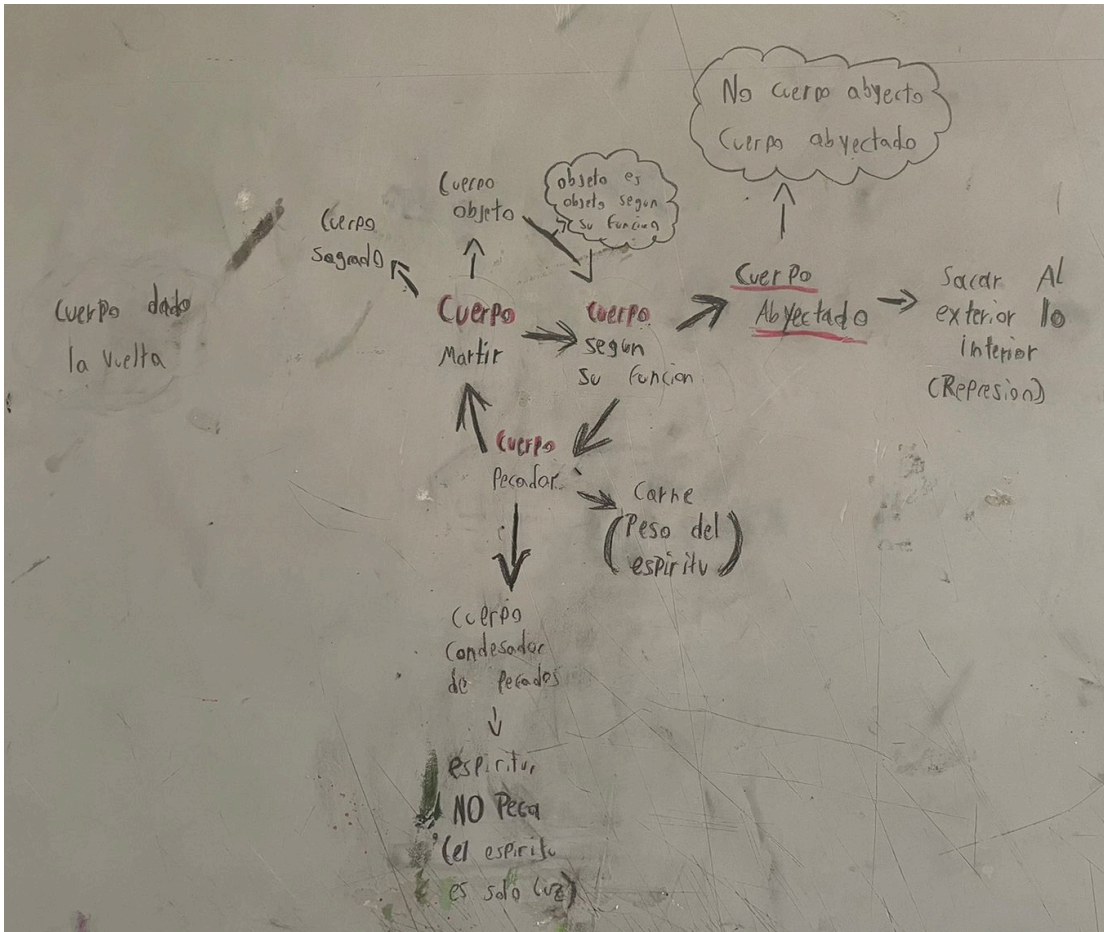 No cuerpo abyecto
Cuerpo abyectado
Cuerpo
objeto
objeto es
objeto segun
su funcion
Cuerpo
sagrado
Cuerpo dado
la vuelta
Cuerpo
Martir
Cuerpo
según
su funcion
Cuerpo
Abyectado
Sacar Al
exterior lo
interior
(Represion)
Cuerpo
Pecador
Carne
(Peso del
espiritu)
Cuerpo
Condesador
de Pecados
espiritu,
NO Peca
(el espiritu
es solo luz)